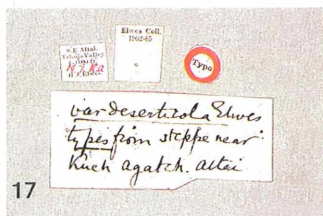 S.E. Altai
Tchuja Valley
H.J. Elwes
Elwes Coll.
1902-85
Type
var deserticola Elwes
types from steppe near
Kuch agatch. Altai
17